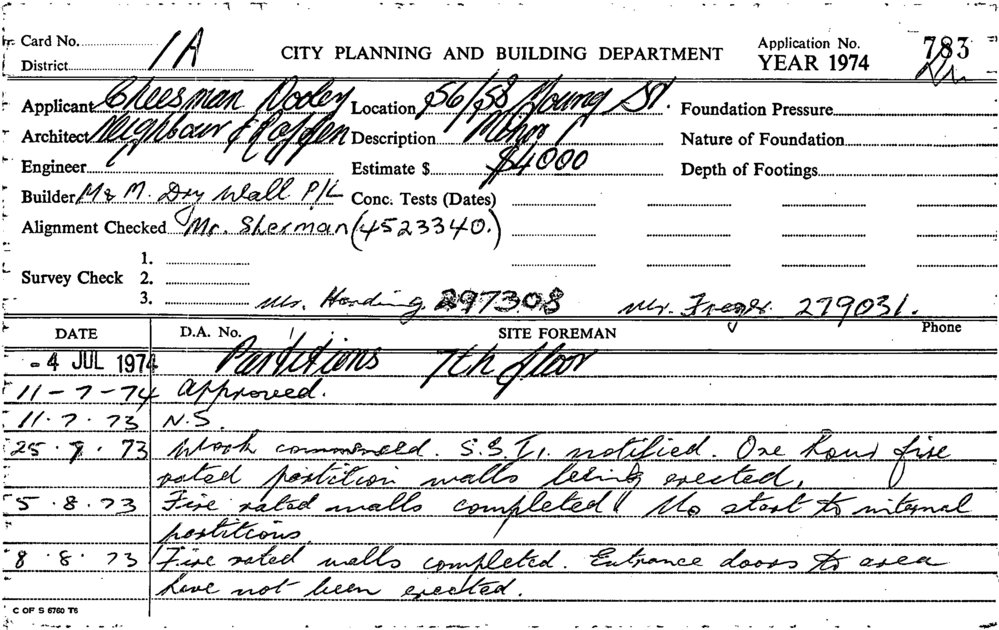 Card No. 1A CITY PLANNING AND BUILDING DEPARTMENT Application No. 783
District YEAR 1974
Applicant Cheesman Dooley Location 56/58 Young St. Foundation Pressure
Architect Neighbour & Description Minor Nature of Foundation
Engineer Estimate $ $4000 Depth of Footings
Builder M & M. Dry Wall P/L Conc. Tests (Dates)
Alignment Checked Mr. Sherman (4523340.)
1.
Survey Check 2.
3. Mr. Harding 297308 Mr. Fraser. 279031.
DATE D.A. No. SITE FOREMAN Phone
- 4 JUL 1974 Partitions 7th floor
11-7-74 Approved.
11.7.73 N.S.
25.7.73 Work commenced. S.S.I. notified. One hour fire
rated partition walls being erected.
5.8.73 Fire rated walls completed No start to internal
partitions.
8.8.73 Fire rated walls completed. Entrance doors to area
have not been erected.
C OF S 6760 T6